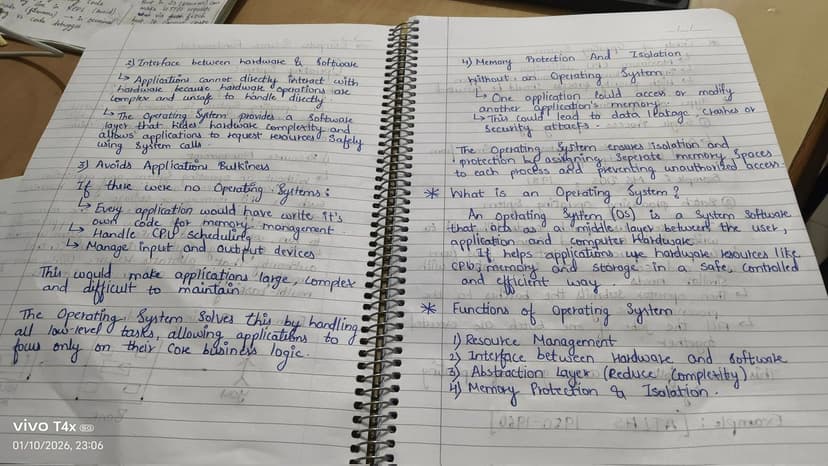 2) Interface between hardware & Software
↳ Applications cannot directly interact with
hardware because hardware operations are
complex and unsafe to handle directly
↳ The Operating System provides a software
layer that hides hardware complexity and
allows applications to request resources safely
using System calls.
3) Avoids Application Bulkiness
If there were no Operating Systems:
↳ Every application would have write it's
own code for memory management
↳ Handle CPU scheduling
↳ Manage input and output devices
This would make applications large, complex
and difficult to maintain
The Operating System solves this by handling
all low-level tasks, allowing applications to
focus only on their core business logic.
vivo T4x 5G
01/10/2026, 23:06
4) Memory Protection And Isolation
Without an Operating System
↳ One application could access or modify
another application's memory
↳ This could lead to data leakage, crashes or
Security attacks.
The Operating System ensures isolation and
protection by assigning Seperate memory Spaces
to each process and preventing unauthorized access.
* What is an Operating System?
An Operating System (OS) is a System Software
that acts as a middle layer between the user,
application and computer Hardware.
It helps applications use hardware resources like
CPU, memory and storage in a safe, controlled
and efficient way.
* Functions of Operating System
1) Resource Management
2) Interface between Hardware and Software
3) Abstraction Layer (Reduce Complexity)
4) Memory Protection & Isolation.